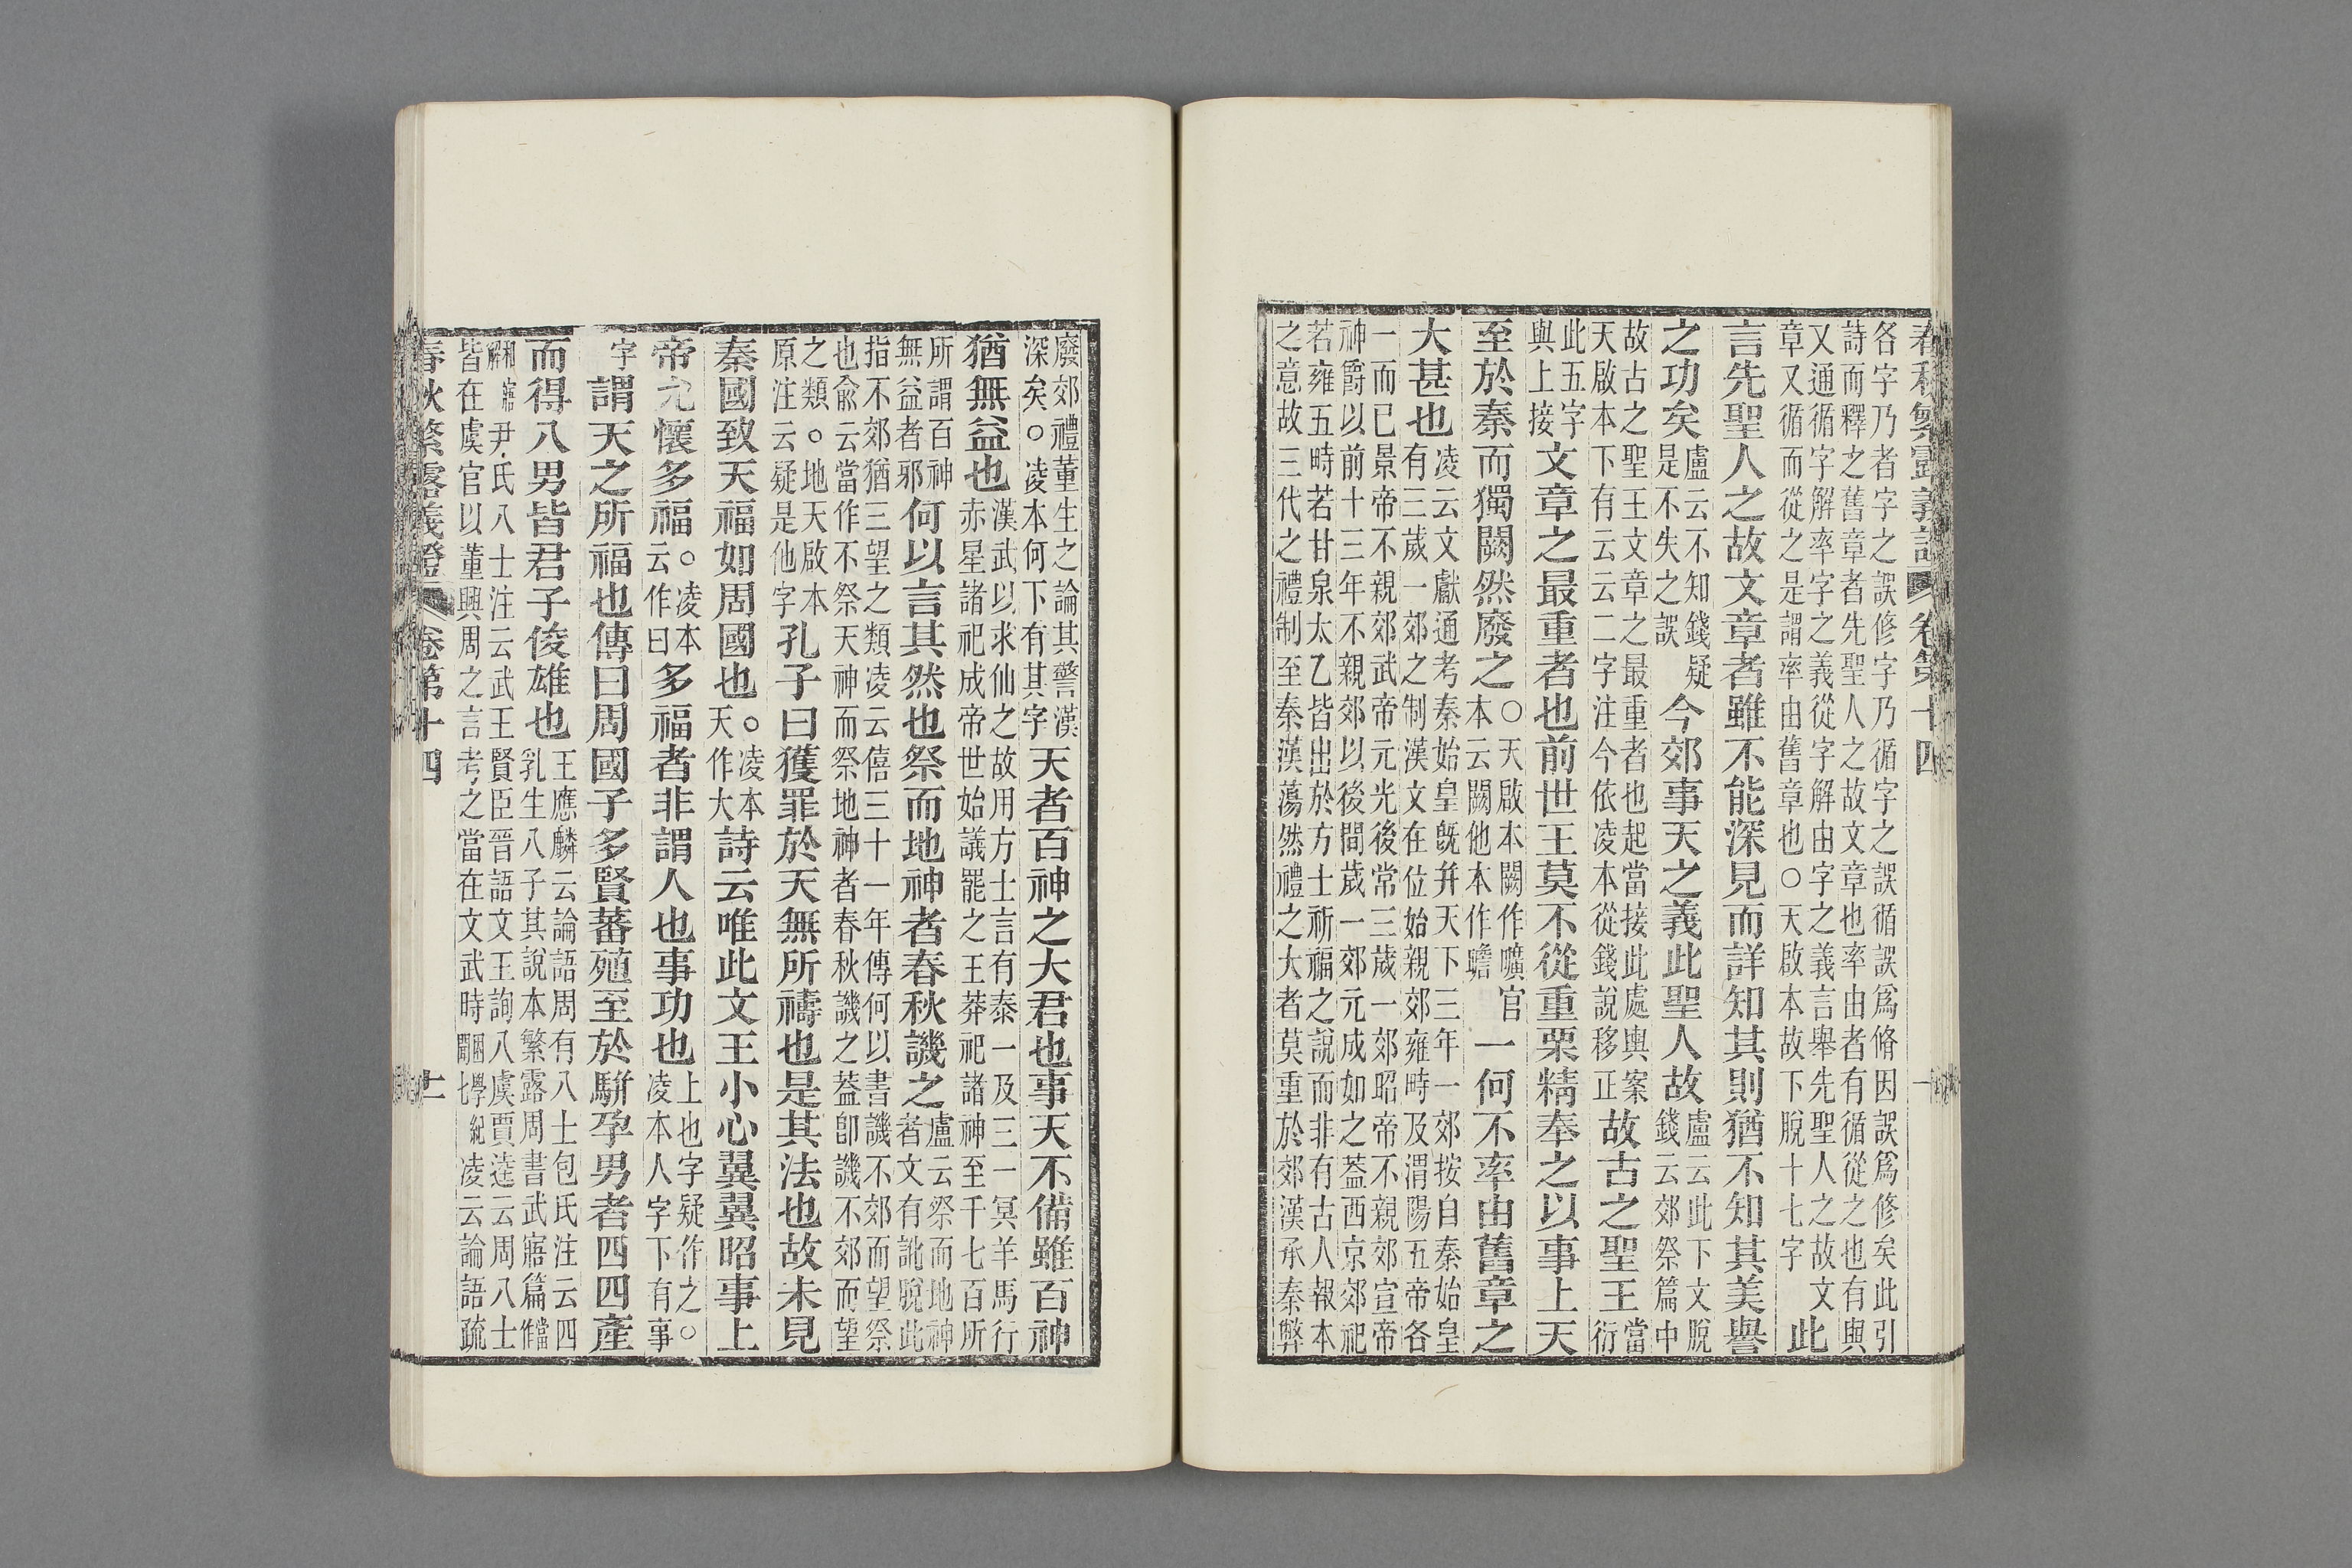 春秋繁露義證 卷第十四
各字乃者字之誤修字乃循字之誤循誤爲脩因誤爲修矣此引
詩而釋之舊章者先聖人之故文章也率由者有循從之也有與
又通循字解率字之義從字解由字之義言舉先聖人之故文
章又循而從之是謂率由舊章也○天啟本故下脫十七字
此
言先聖人之故文章者雖不能深見而詳知其則猶不知其美譽
之功矣
盧云不知錢疑
是不失之誤
今郊事天之義此聖人故
盧云此下文脫
錢云郊祭篇中
故古之聖王文章之最重者也起當接此處輿案
天啟本下有云云二字注今依凌本從錢說移正
故古之聖王
當
衍
此五字
與上接
文章之最重者也前世王莫不從重栗精奉之以事上天
至於秦而獨闕然廢之
○天啟本闕作曠官
本云闕他本作瞻
一何不率由舊章之
大甚也
凌云文獻通考秦始皇旣幷天下三年一郊按自秦始皇
有三歲一郊之制漢文在位始親郊雍畤及渭陽五帝各
一而已景帝不親郊武帝元光後常三歲一郊昭帝不親郊宣帝
神爵以前十三年不親郊以後間歲一郊元成如之葢西京郊祀
若雍五畤若甘泉太乙皆出於方士祈福之說而非有古人報本
之意故三代之禮制至秦漢蕩然禮之大者莫重於郊漢承秦弊
廢郊禮董生之論其警漢
深矣○凌本何下有其字
天者百神之大君也事天不備雖百神
猶無益也
漢武以求仙之故用方士言有泰一及三一冥羊馬行
赤星諸祀成帝世始議罷之王莽祀諸神至千七百所
所謂百神
無益者邪
何以言其然也祭而地神者春秋譏之
盧云祭而地神
者文有訛脫此
指不郊猶三望之類凌云僖三十一年傳何以書譏不郊而望祭
也俞云當作不祭天神而祭地神者春秋譏之葢卽譏不郊而望
之類○地天啟本
原注云疑是他字
孔子曰獲罪於天無所禱也是其法也故未見
秦國致天福如周國也
○凌本
天作大
詩云唯此文王小心翼翼昭事上
帝允懷多福
○凌本
云作曰
多福者非謂人也事功也
上也字疑作之○
凌本人字下有事
字
謂天之所福也傳曰周國子多賢蕃殖至於駢孕男者四四產
而得八男皆君子俊雄也
王應麟云論語周有八士包氏注云四
乳生八子其說本繁露周書武寤篇當作
和寤解
尹氏八士注云武王賢臣晉語文王詢八虞賈逵云周八士
皆在虞官以董興周之言考之當在文武時困學紀聞七
凌云論語疏
春秋繁露義證 卷第十四 十一